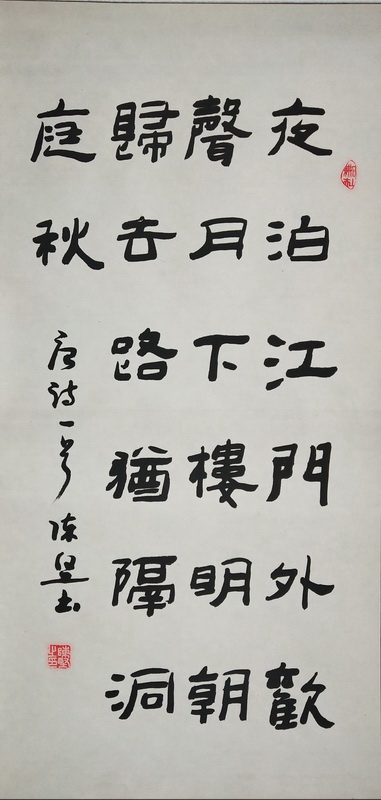 夜泊江門外歡
聲月下樓明朝
歸去路猶隔洞
庭秋
唐詩一首 陳 書